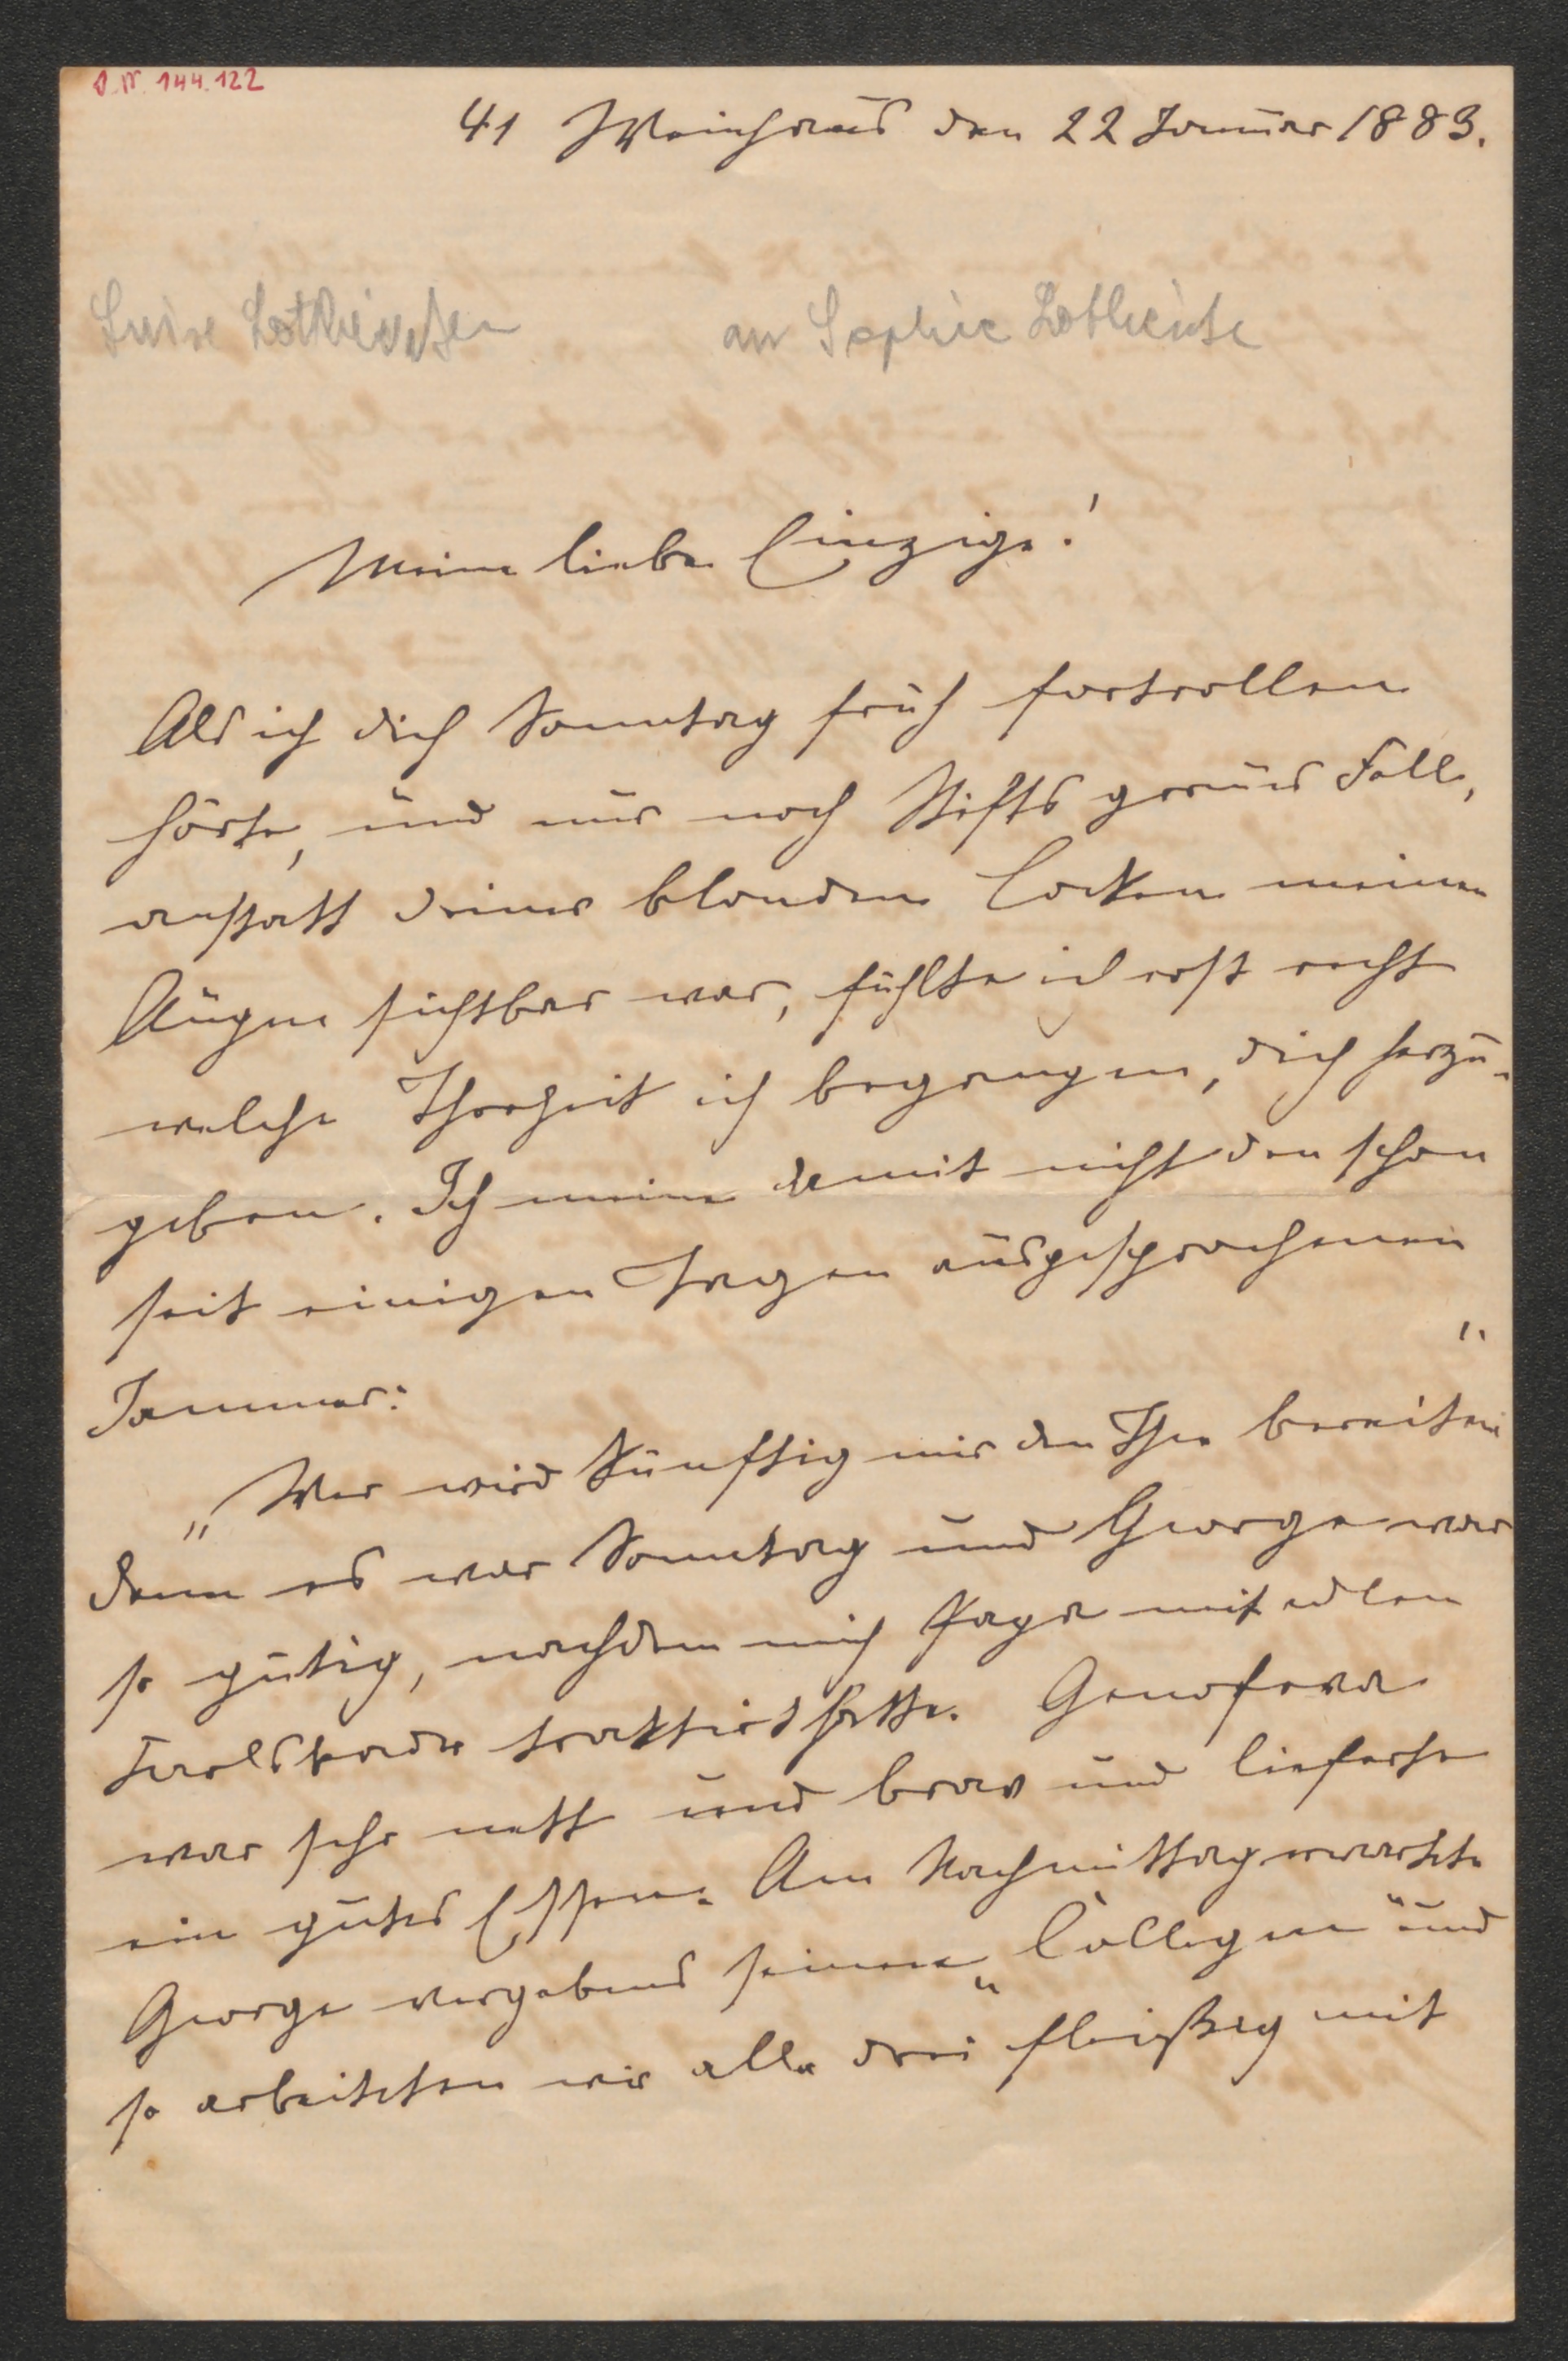 J.N. 144.122
41 Weinhaus den 22 Januar 1883.
Luise Lotheissen an Sophie Lotheiße
Meine liebe Einzige!
Als ich dich Sonntag früh fortrollen
hörte, und nur noch Stifts graues Fell,
anstatt deiner blonden Locken meinen
Augen sichtbar war, fühlte ich erst recht
welche Thorheit ich begangen, dich herzu-
geben. Ich meine damit nicht den schon
seit einigen Tagen ausgesprochenen
Jammer:
„Wer wird künftig mir den Thee bereiten"
denn es war Sonntag und George war
so gütig, nachdem mich Papa mit edlen
traktiert hatte. Genofeva
war sehr nett und brav und lieferte
ein gutes Essen. Am Nachmittag erwartete
George vergebens seinen „Collegen" und
so arbeiteten wir alle drei fleißig mit